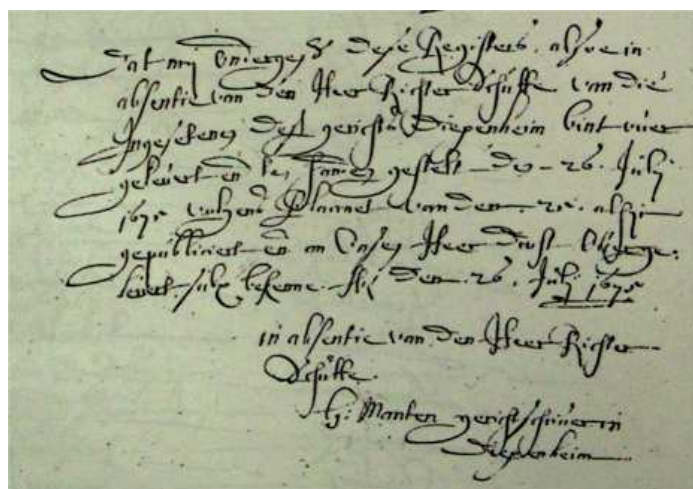 Dat my ondergesz dese Registers alhoe in
absentie van den Heer Richter Schulte van die
Ingesetenen dess gerichts Diepenheim bint over
gelevert en handen gestelt den 26. July
1675 volgens Placaet van den 25. alhier
gepubliceert en an onsen Heer Drost
levert, sulx bekenne den 26. July 1675
in absentie van den Heer Richter
Schulte.
H: Manten gerichtschriver in
Diepenheim